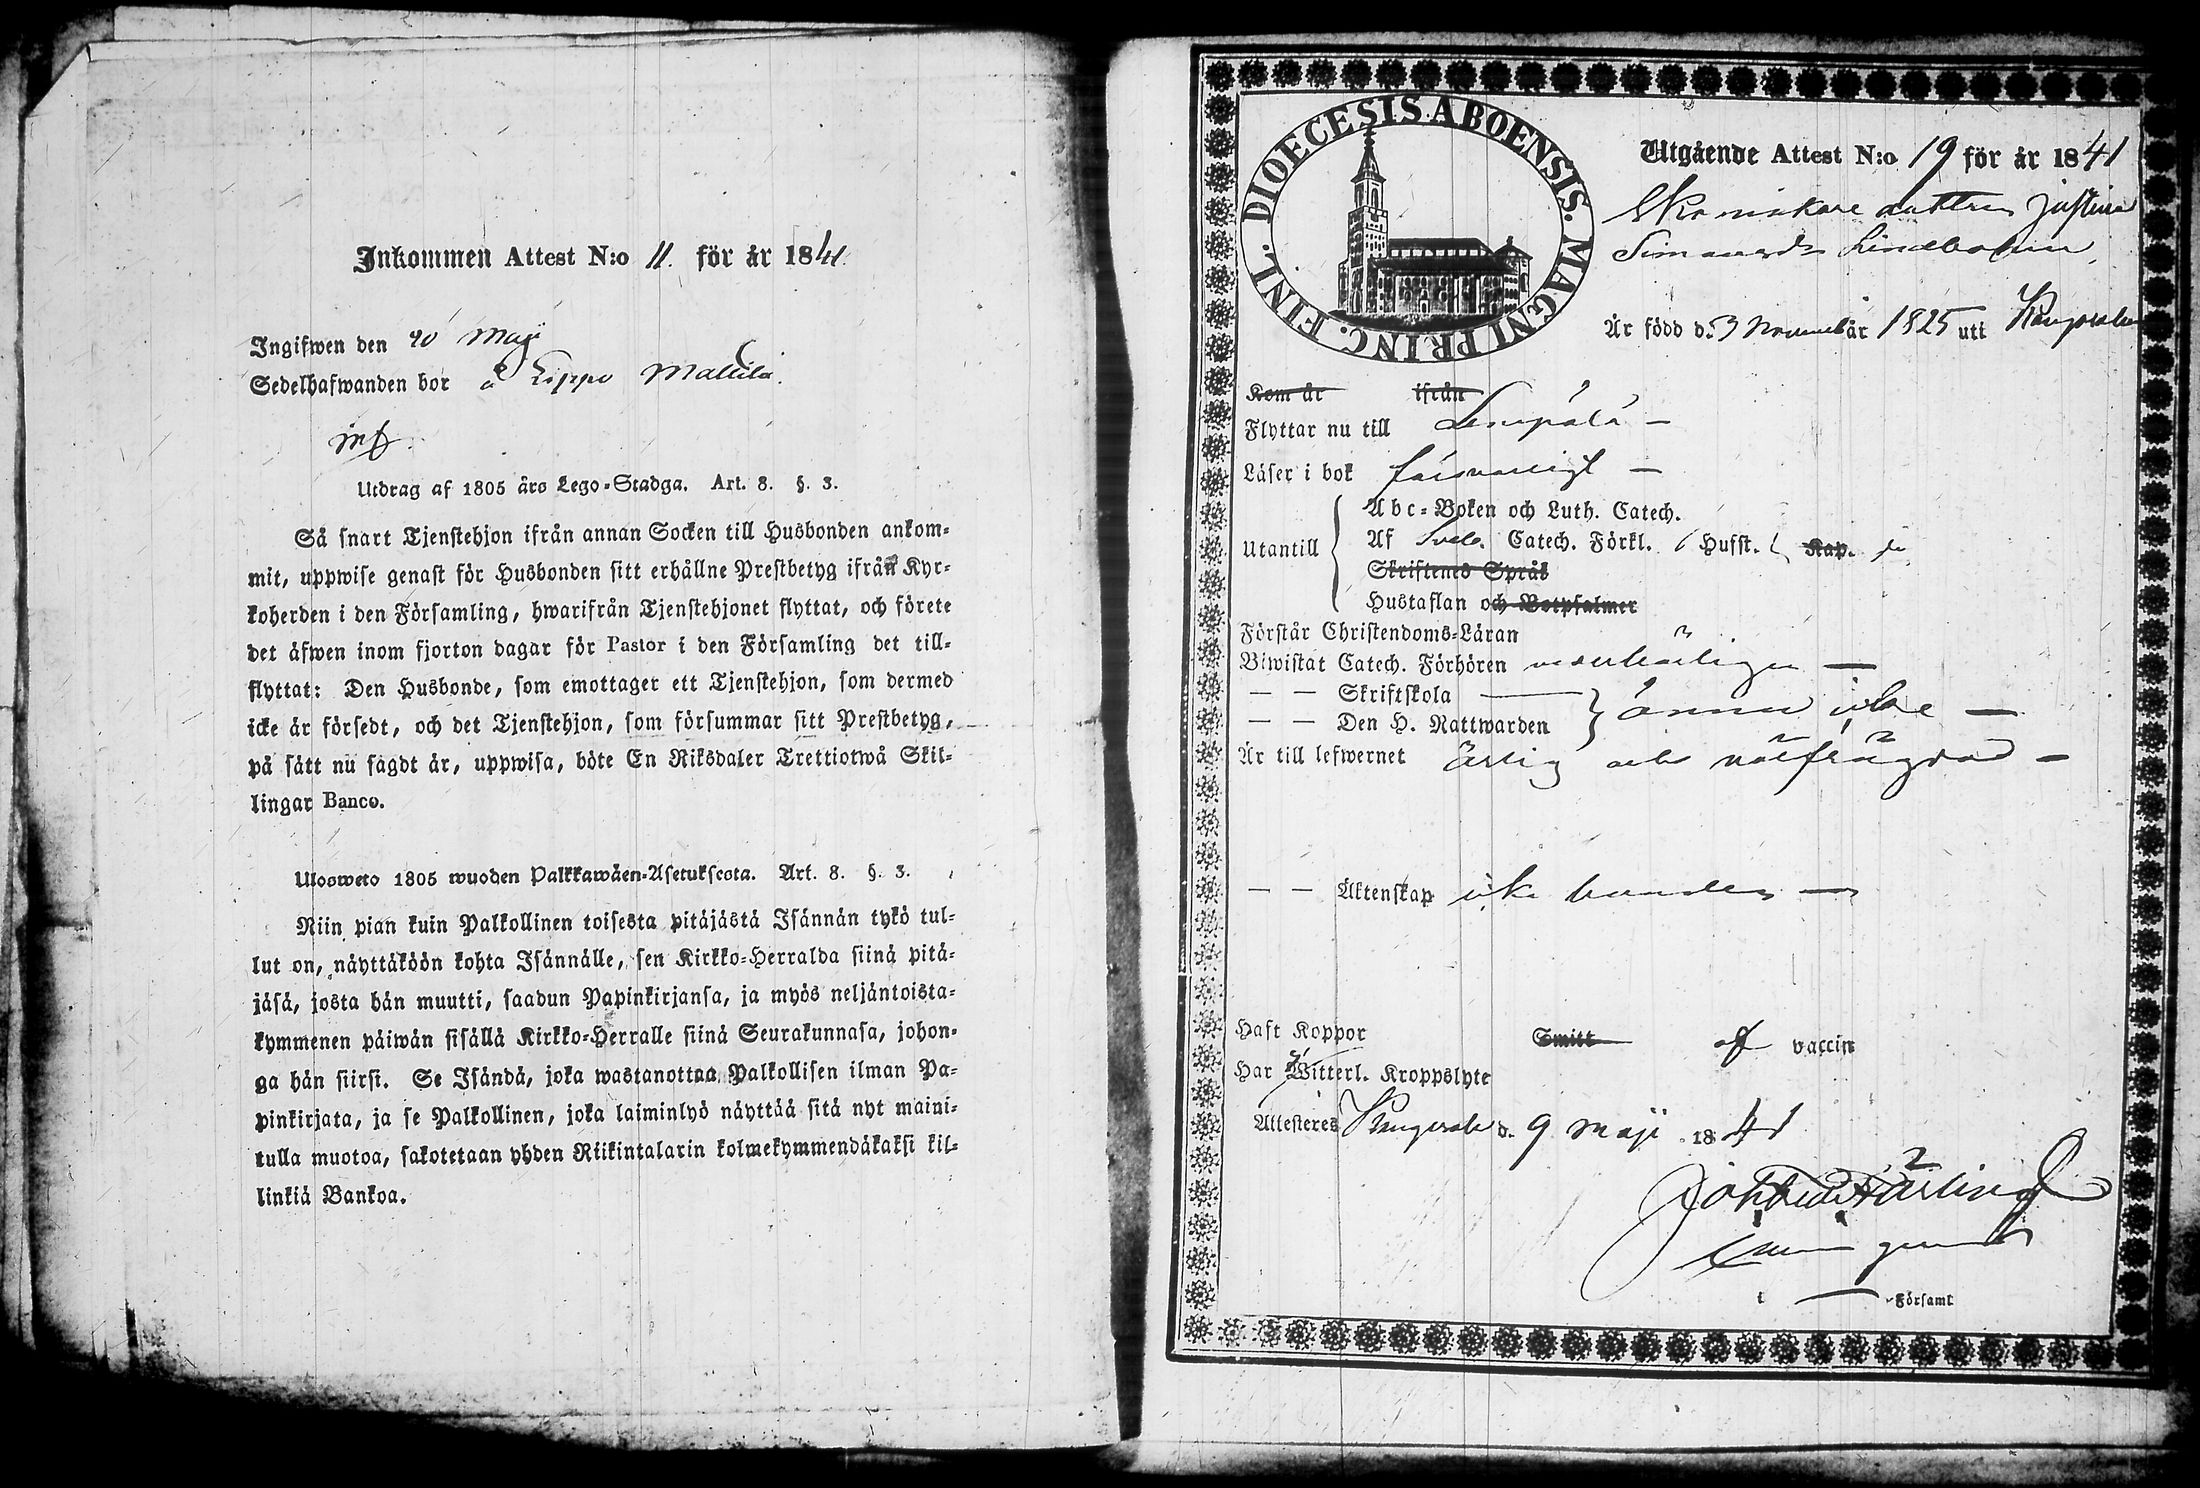 Inkommen Attest N:o 11. för år 1841.
Ingifwen den 20 Maji
Sedelhafwanden bor å Loppo Mattila.
inf.
Utdrag af 1805 års Lego-Stadga. Art. 8. §. 3.
Så snart Tjenstehjon ifrån annan Socken till Husbonden ankom-
mit, uppwise genast för Husbonden sitt erhållne Prestbetyg ifrån Kyr-
koherden i den Församling, hwarifrån Tjenstehjonet flyttat, och förete
det äfwen inom fjorton dagar för Pastor i den Församling det till-
flyttat: Den Husbonde, som emottager ett Tjenstehjon, som dermed
icke är försedt, och det Tjenstehjon, som försummar sitt Prestbetyg,
på sätt nu sagdt är, uppwisa, böte En Riksdaler Trettiotwå Skil-
lingar Banco.
Ulosweto 1805 wuoden Palkkawäen-Asetuksesta. Art. 8. §. 3.
Niin pian kuin Palkollinen toisesta pitäjästä Isännän tykö tul-
lut on, näyttäköön kohta Isännälle, sen Kirkko-Herralda siinä pitä-
jäsä, josta hän muutti, saadun Papinkirjansa, ja myös neljäntoista-
kymmenen päiwän sisällä Kirkko-Herralle siinä Seurakunnasa, johon-
ga hän siirsi. Se Isändä, joka wastanottaa Palkollisen ilman Pa-
pinkirjata, ja se Palkollinen, joka laiminlyö näyttää sitä nyt maini-
tulla muotoa, sakotetaan yhden Riikintalarin kolmekymmendäkaksi kil-
linkiä Bankoa.
DIOECESIS ABOENSIS. MAGNI PRINC. FINL.
Utgående Attest N:o 19 för år 1841
Skomakare dottren Justina
Simonsdr Lindholm
Är född d. 3 Novemb år 1825 uti Kangasala
Kom år ifrån
Flyttar nu till Lempälä –
Läser i bok försvarligt –
Abc-Boken och Luth. Catech.
Utantill Af Sveb. Catech. Förkl. Husst. Kap.
Skriftenes Språk
Hustaflan och Botpsalmer
Förstår Christendoms-Läran
Biwistat Catech. Förhören –
– – Skriftskola
– – Den H. Nattwarden ännu icke –
Är till lefwernet ärlig och välfrägdad –
– – Äktenskap icke bunden –
Haft Koppor Smitt af vaccin
Har Witterl. Kroppslyte
Attesteres Kangasala d. 9 Maji 1841
i – Församl